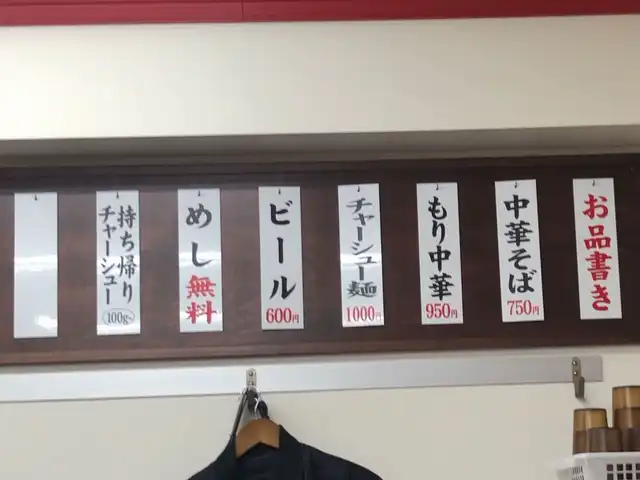 お品書き
中華そば
750円
もり中華
950円
チャーシュー麺
1000円
ビール
600円
めし無料
持ち帰り
チャーシュー
100g~